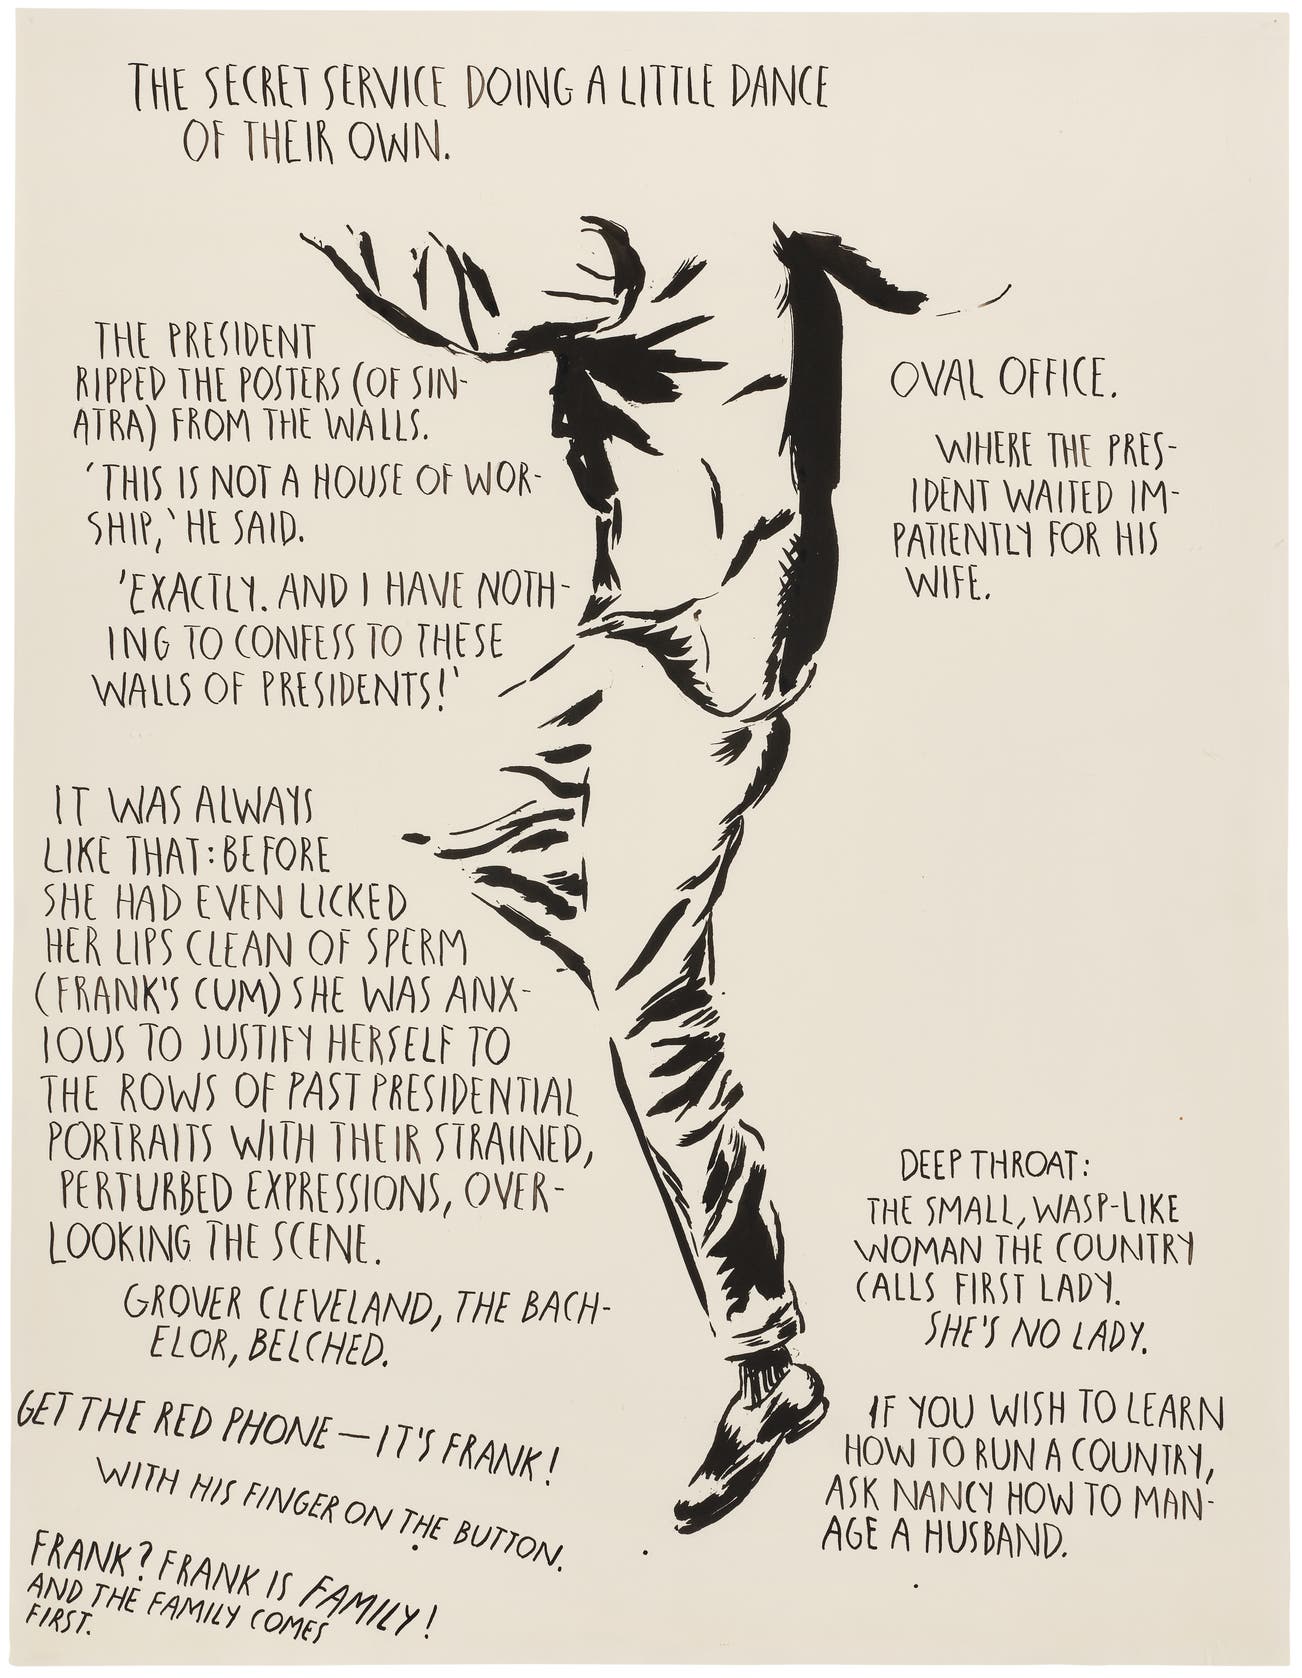 THE SECRET SERVICE DOING A LITTLE DANCE
OF THEIR OWN.
THE PRESIDENT
RIPPED THE POSTERS (OF SIN-
ATRA) FROM THE WALLS.
'THIS IS NOT A HOUSE OF WOR-
SHIP,' HE SAID.
'EXACTLY. AND I HAVE NOTH-
ING TO CONFESS TO THESE
WALLS OF PRESIDENTS!'
IT WAS ALWAYS
LIKE THAT: BEFORE
SHE HAD EVEN LICKED
HER LIPS CLEAN OF SPERM
(FRANK'S CUM) SHE WAS ANX-
IOUS TO JUSTIFY HERSELF TO
THE ROWS OF PAST PRESIDENTIAL
PORTRAITS WITH THEIR STRAINED,
PERTURBED EXPRESSIONS, OVER-
LOOKING THE SCENE.
GROVER CLEVELAND, THE BACH-
ELOR, BELCHED.
GET THE RED PHONE — IT'S FRANK!
WITH HIS FINGER ON THE BUTTON.
FRANK? FRANK IS FAMILY!
AND THE FAMILY COMES
FIRST.
OVAL OFFICE.
WHERE THE PRES-
IDENT WAITED IM-
PATIENTLY FOR HIS
WIFE.
DEEP THROAT:
THE SMALL, WASP-LIKE
WOMAN THE COUNTRY
CALLS FIRST LADY.
SHE'S NO LADY.
IF YOU WISH TO LEARN
HOW TO RUN A COUNTRY,
ASK NANCY HOW TO MAN-
AGE A HUSBAND.